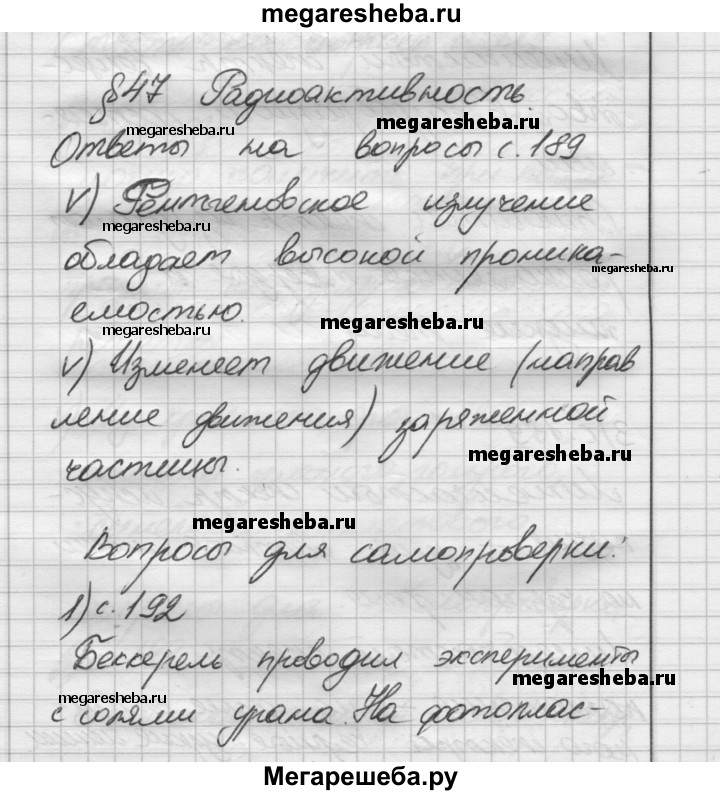 megaresheba.ru
§47 Радиоактивность.
megaresheba.ru
megaresheba.ru
Ответы на вопросы с.189
V) Рентгеновское излучение
megaresheba.ru
обладает высокой проница-
megaresheba.ru
емостью.
megaresheba.ru
megaresheba.ru
V) Изменеет движение (направ
ление движения) заряженной
частицы.
megaresheba.ru
megaresheba.ru
Вопросы для самопроверки:
1) с. 192
Беккерель проводил эксперименты
megaresheba.ru
megaresheba.ru
с солями урана. На фотоплас-
Мегарешеба.ру